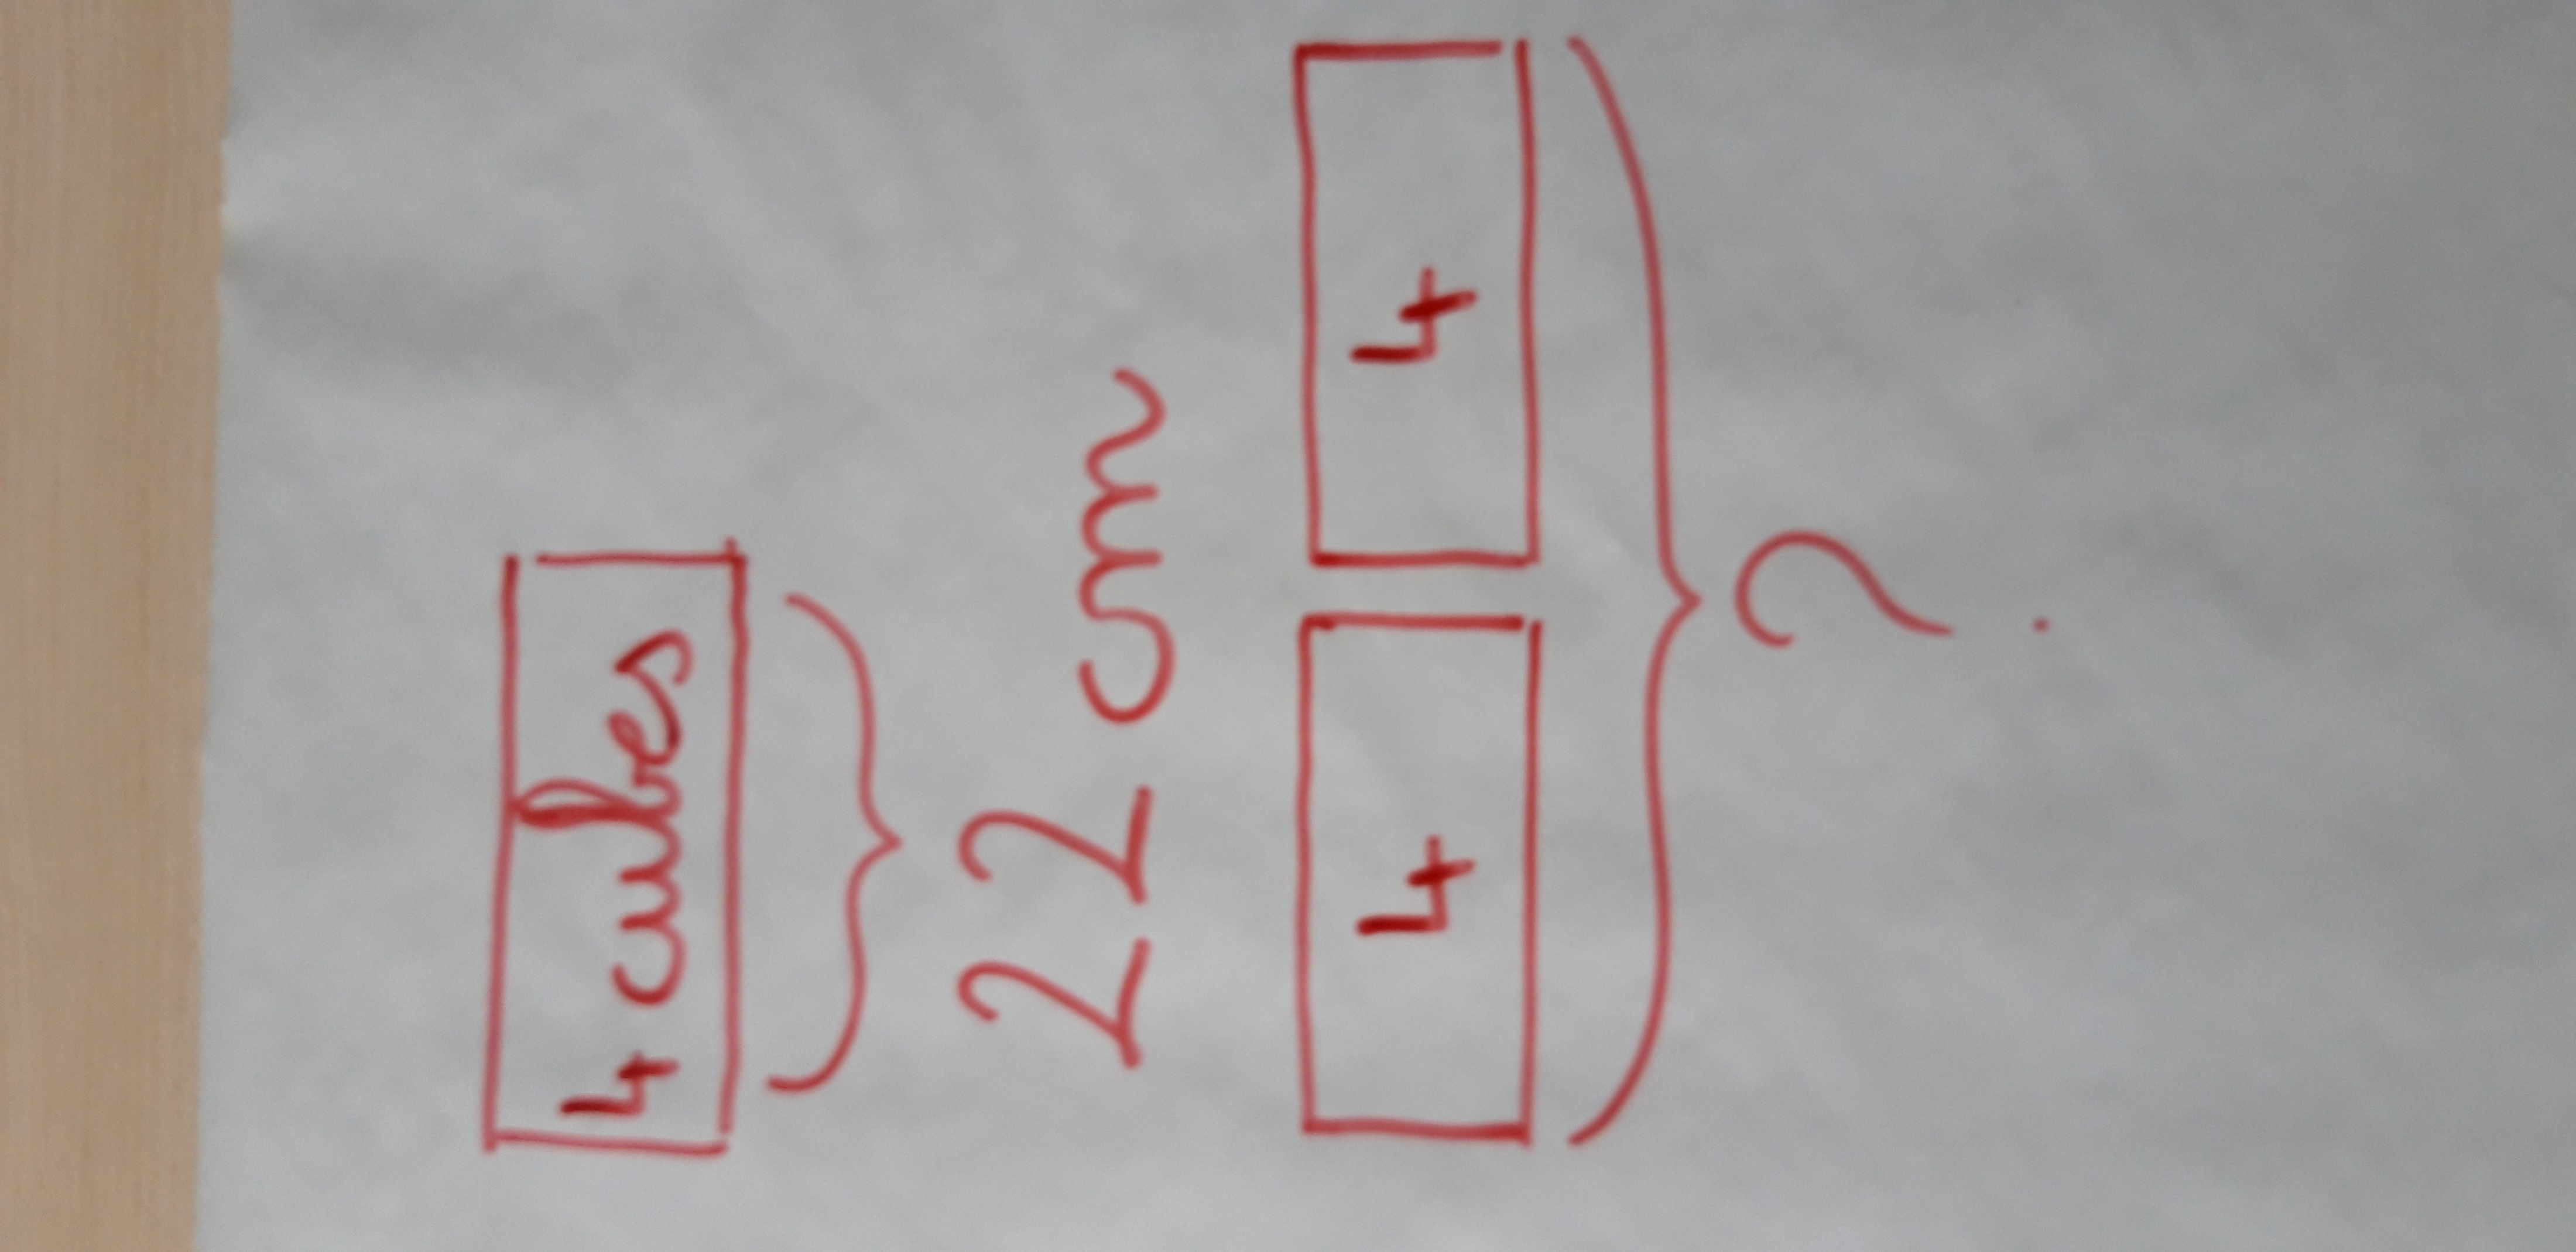 4 cubes
22 cm
4 4
?